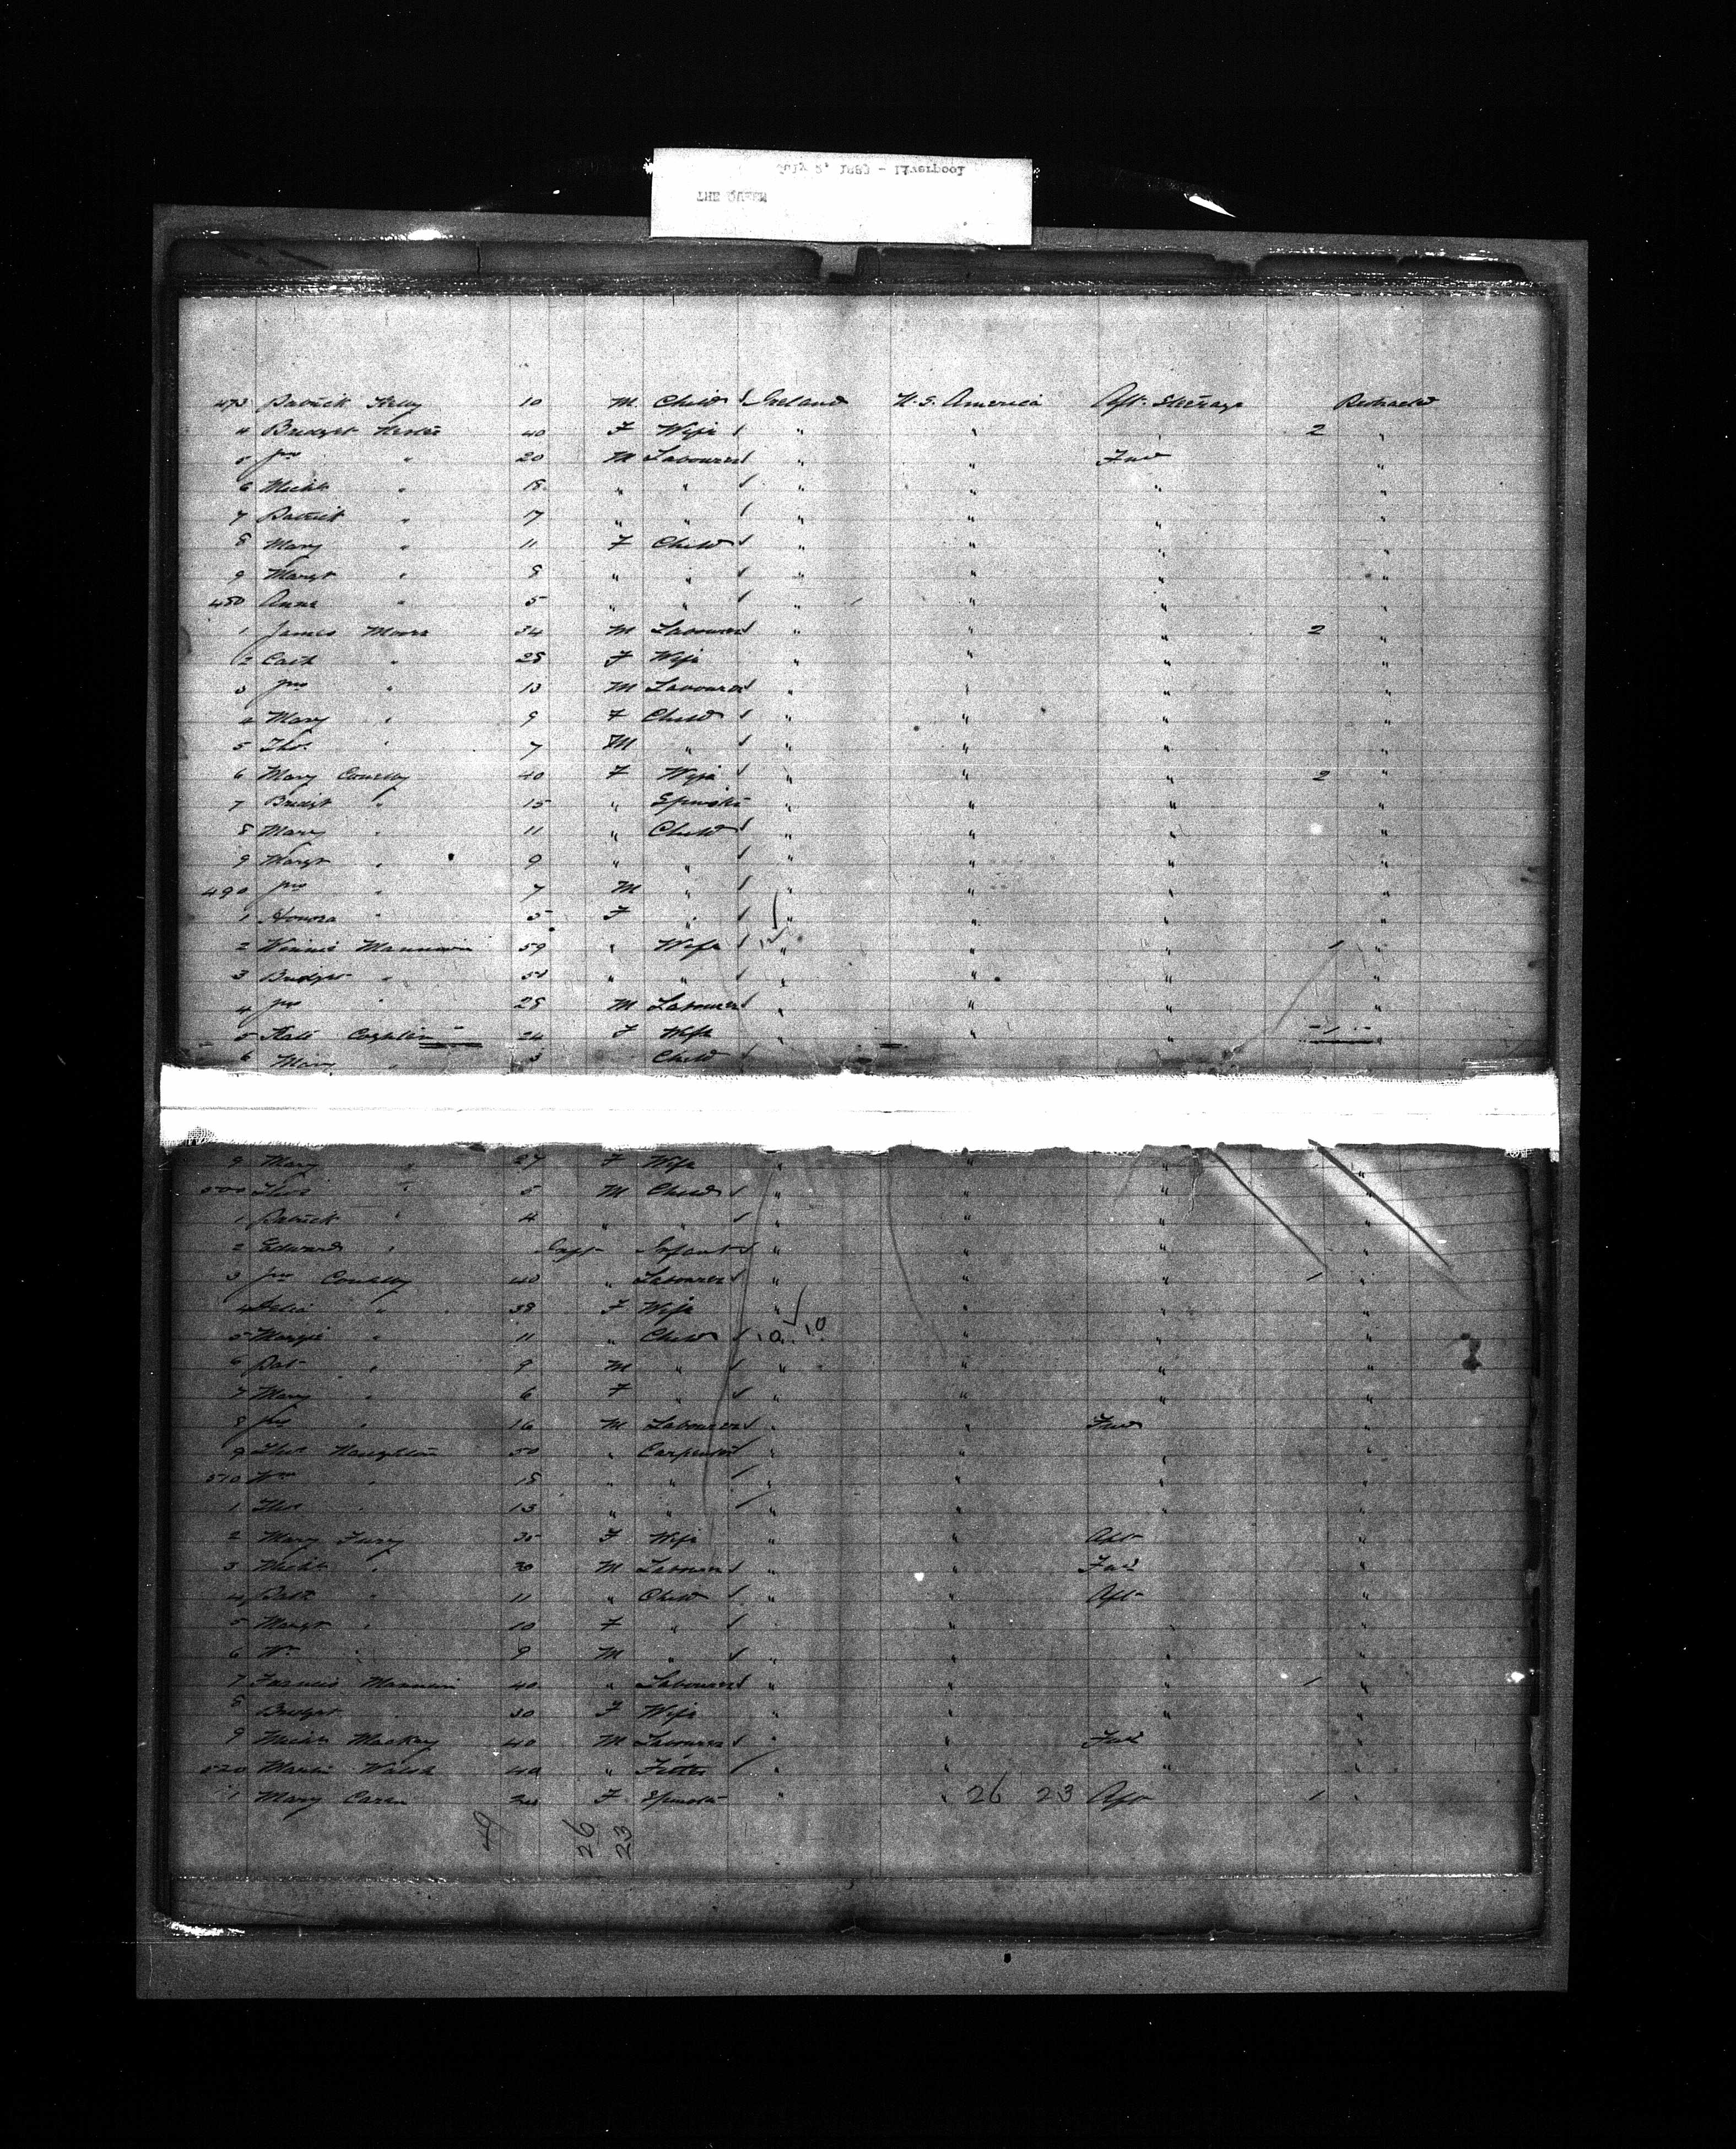 July 2, 1883 - Liverpool
THE QUEEN
473 Patrick Kelly 10 M Child Ireland U.S. America Aft. Steerage
4 Bridget 40 F Wife " " 2 "
5 Jno " 20 M Labourer " " Fwd "
6 Michl " 18 " " " " " "
7 Patrick " 17 " " " " " "
8 Mary " 11 F Child " " " "
9 Margt " 8 " " " " " "
480 Anne " 5 " " " " " "
1 James Moore 34 M Labourer " " " 2 "
2 Cath " 28 F Wife " " " "
3 Jno " 13 M Labourer " " " "
4 Mary " 9 F Child " " " "
5 Thos " 7 M " " " " "
6 Mary Conelly 40 F Wife " " " 2 "
7 Bridgt " 15 " Spinster " " " "
8 Mary " 11 " Child " " " "
9 Margt " 9 " " " " " "
490 Jno " 7 M " " " " "
1 Honora " 5 F " " " " "
2 Winnie Mannion 59 " Wife " " " 1 "
3 Bridget " " " " " " "
4 Jno " 28 M Labourer " " " "
5 Kate 24 F Wife " " 1
6 Mary " 3 Child
9 Mary " 27 F Wife " " " "
500 Thos " 5 M Child " " " "
1 Patrick " 4 " " " " " "
2 Edward " Inft Infant " " " "
3 Jno Conelly 40 " Labourer " " " 1 "
4 Delia " 38 F Wife " " " "
5 Maggie " 11 " Child " " " "
6 Pat " 9 M " " " " "
7 Mary " 6 F " " " " "
8 Jno " 16 M Labourer " " Fwd "
9 Thos Naughton 50 " Carpenter " " " "
510 Wm " 18 " " " " " "
1 Thos " 13 " " " " " "
2 Mary Fury 35 F Wife " " Aft "
3 Michl " M Labourer " " Fwd "
4 Patk " 11 " Child " " Aft "
5 Margt " 10 F " " " " "
6 Wm " 9 M " " " " "
7 Francis Mannion 40 " Labourer " " " 1 "
8 Bridget " 30 F Wife " " " "
9 Michl Mackay 40 M Labourer " " Fwd "
520 Martin Walsh 40 " " " " "
1 Mary F Spinster " " 26 23 Aft 1 "
49 26 23